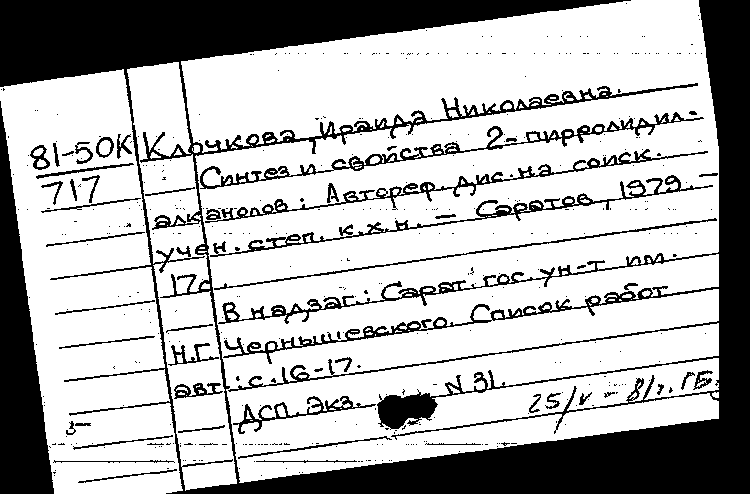 81-50К
717
Клочкова, Ираида Николаевна.
Синтез и свойства 2-пирролидил-
алканолов: Автореф. дис. на соиск.
учен. степ. к.х.н. — Саратов, 1979. —
17с.
В надзаг.: Сарат. гос. ун-т им.
Н.Г. Чернышевского. Список работ
авт.: с.16-17.
ДСП. Экз. N 31.
25/V - 81г. ГБ